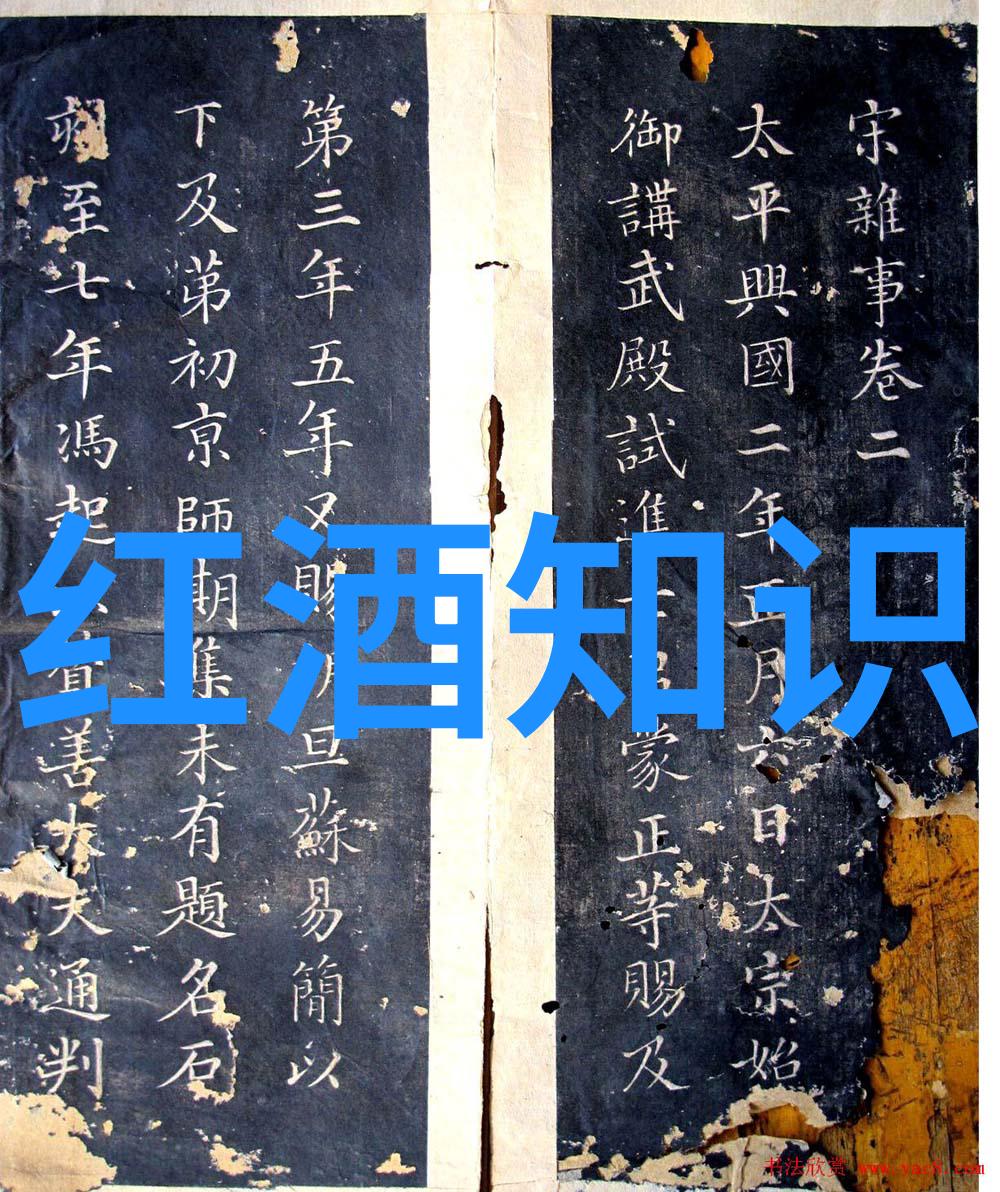 宋雜事卷二
太平興國二年正月六日太宗始
御講武殿試進蒙正䓁賜及
第三年五年又賜旦蘇易簡以
下及苐初京師期集未有題名石
至七年馮起善大夫通判
红酒知识
书法欣赏 www.yac8.com